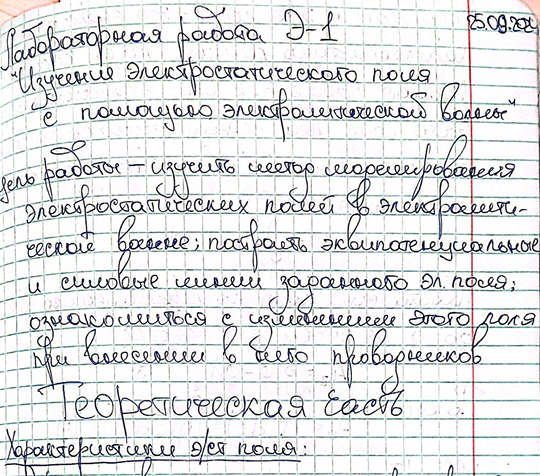 Лабораторная работа Э-1 25.09.202
"Изучение электростатического поля
с помощью электролитической ванны"
Цель работы – изучить метод моделирования
электростатических полей в электролити-
ческой ванне; построить эквипотенциальные
и силовые линии заданного эл. поля;
ознакомиться с изменением этого поля
при внесении в него проводников
Теоретическая часть
Характеристики э/ст поля: